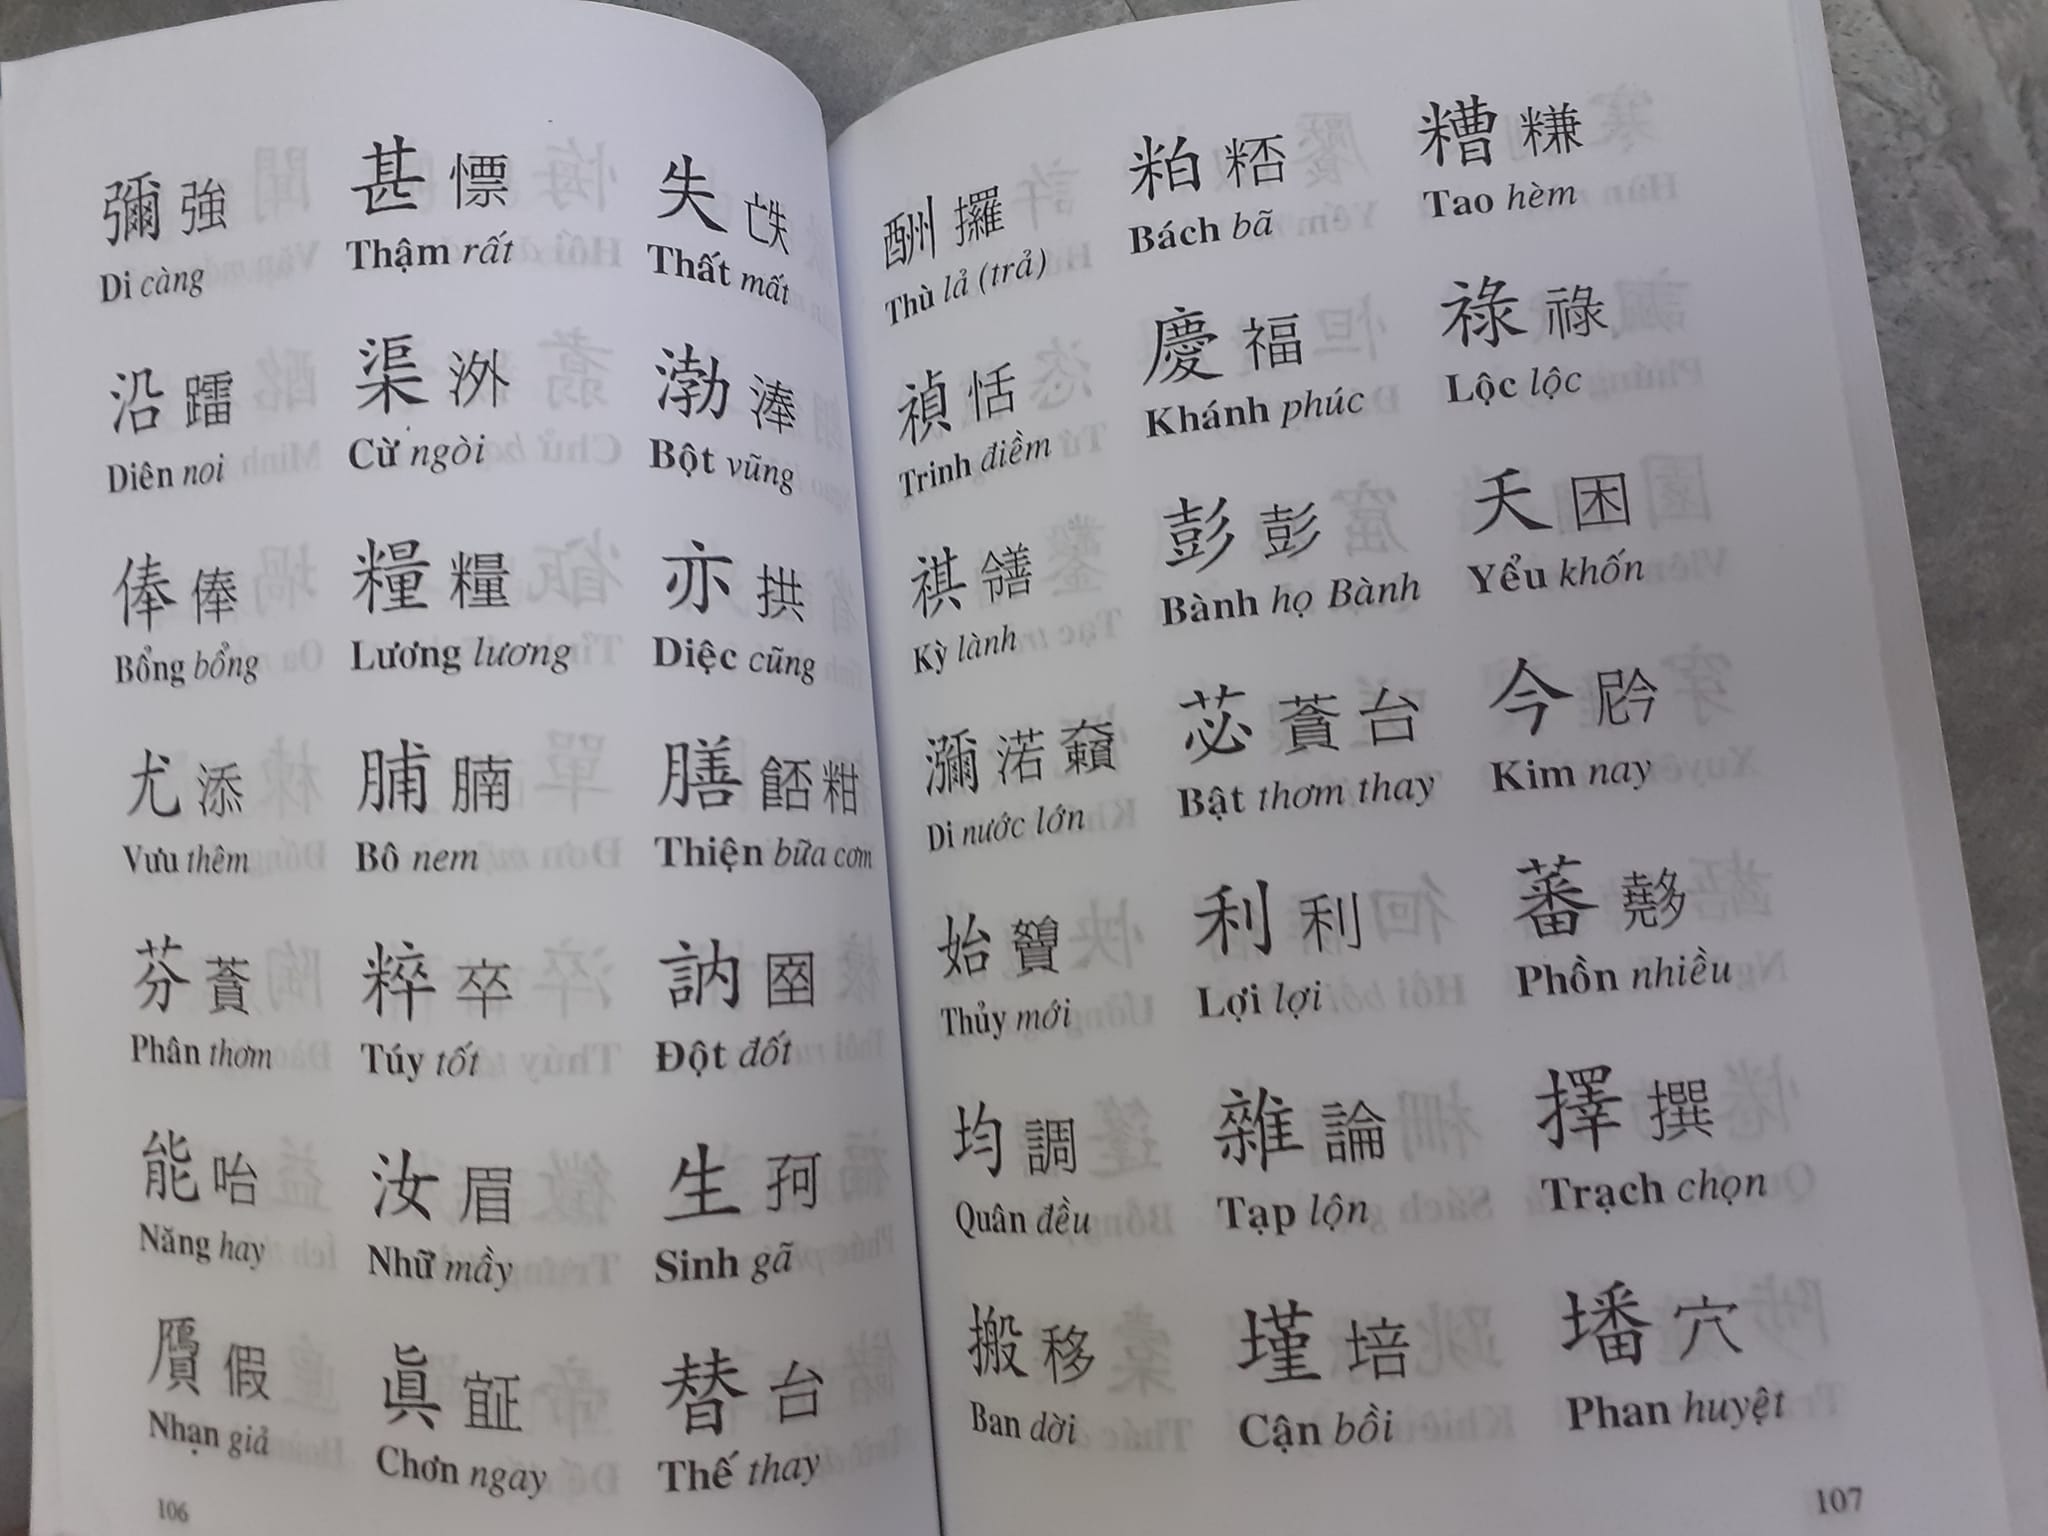 彌 強 甚 慓 失 𠅎
Di càng Thậm rất Thất mất
沿 䠣 渠 渁 渤 淎
Diên noi Cừ ngòi Bột vũng
俸 俸 糧 糧 亦 拱
Bổng bổng Lương lương Diệc cũng
尤 添 脯 腩 膳 𩛷 𥹰
Vưu thêm Bô nem Thiện bữa cơm
芬 𦹳 粹 卒 訥
Phân thơm Túy tốt Đột đốt
能 咍 汝 眉 生 哿
Năng hay Nhữ mầy Sinh gã
贋 假 眞 𣦍 替 台
Nhạn giả Chơn ngay Thế thay
106
酬 攞 粕 糟
Thù lả (trả) Bách bã Tao hèm
禎 恬 慶 福 祿 祿
Trinh điềm Khánh phúc Lộc lộc
祺 彭 彭 夭 困
Kỳ lành Bành họ Bành Yểu khốn
瀰 渃 苾 𦹳 台 今
Di nước lớn Bật thơm thay Kim nay
始 利 利 蕃
Thủy mới Lợi lợi Phồn nhiều
均 調 雜 論 擇 撰
Quân đều Tạp lộn Trạch chọn
搬 移 墐 培 墦 穴
Ban dời Cận bồi Phan huyệt
107